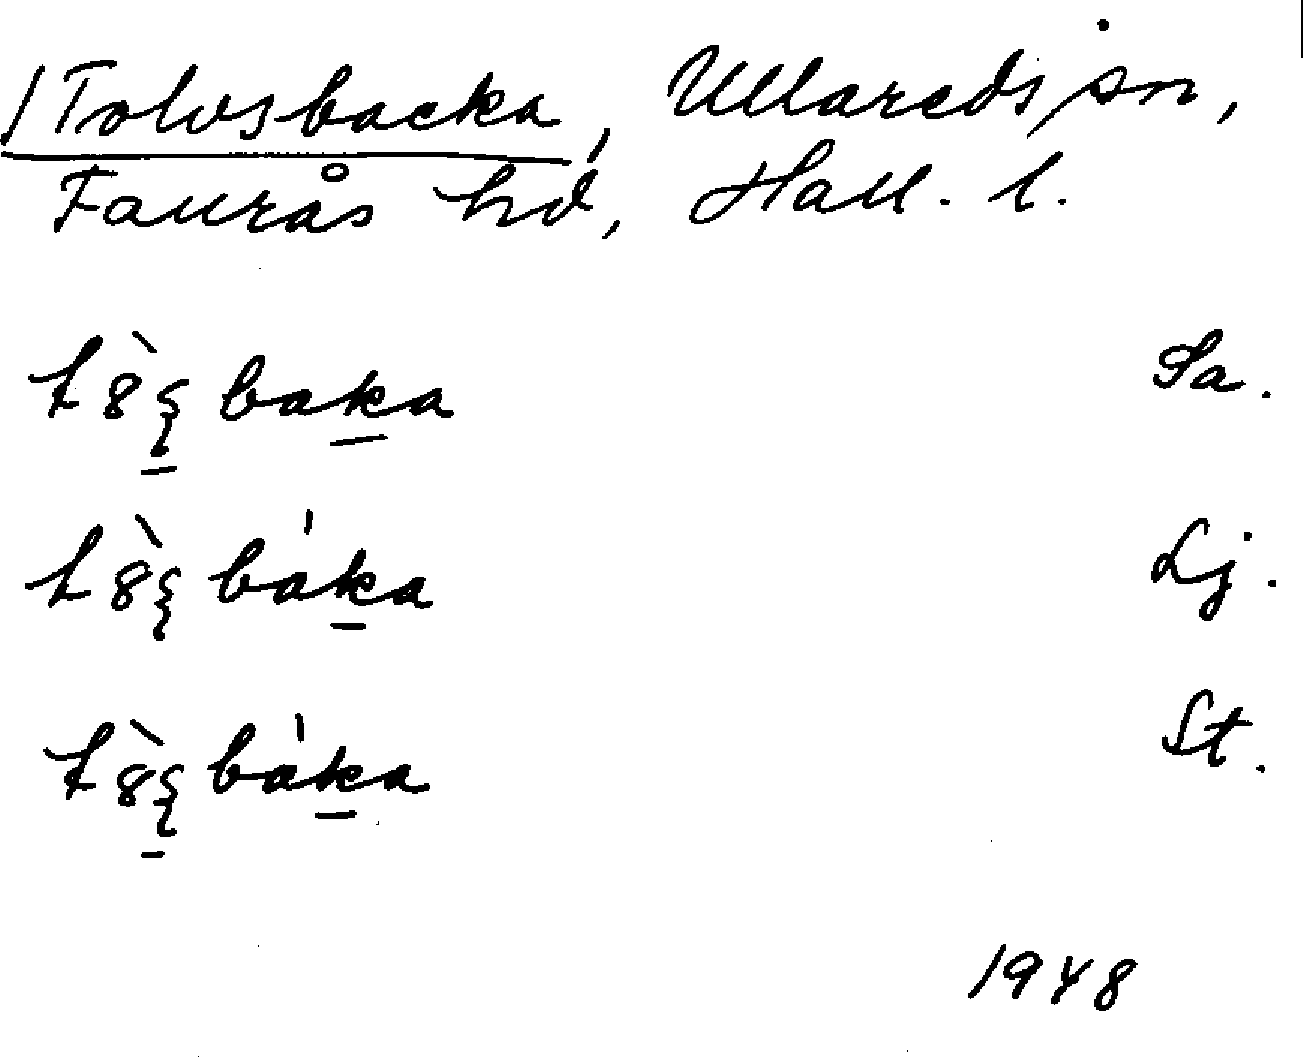 /Tolvsbacka, Ullareds sn,
Faurås hd, Hall. l.
baka Sa.
báka Lj.
báka St.
1948